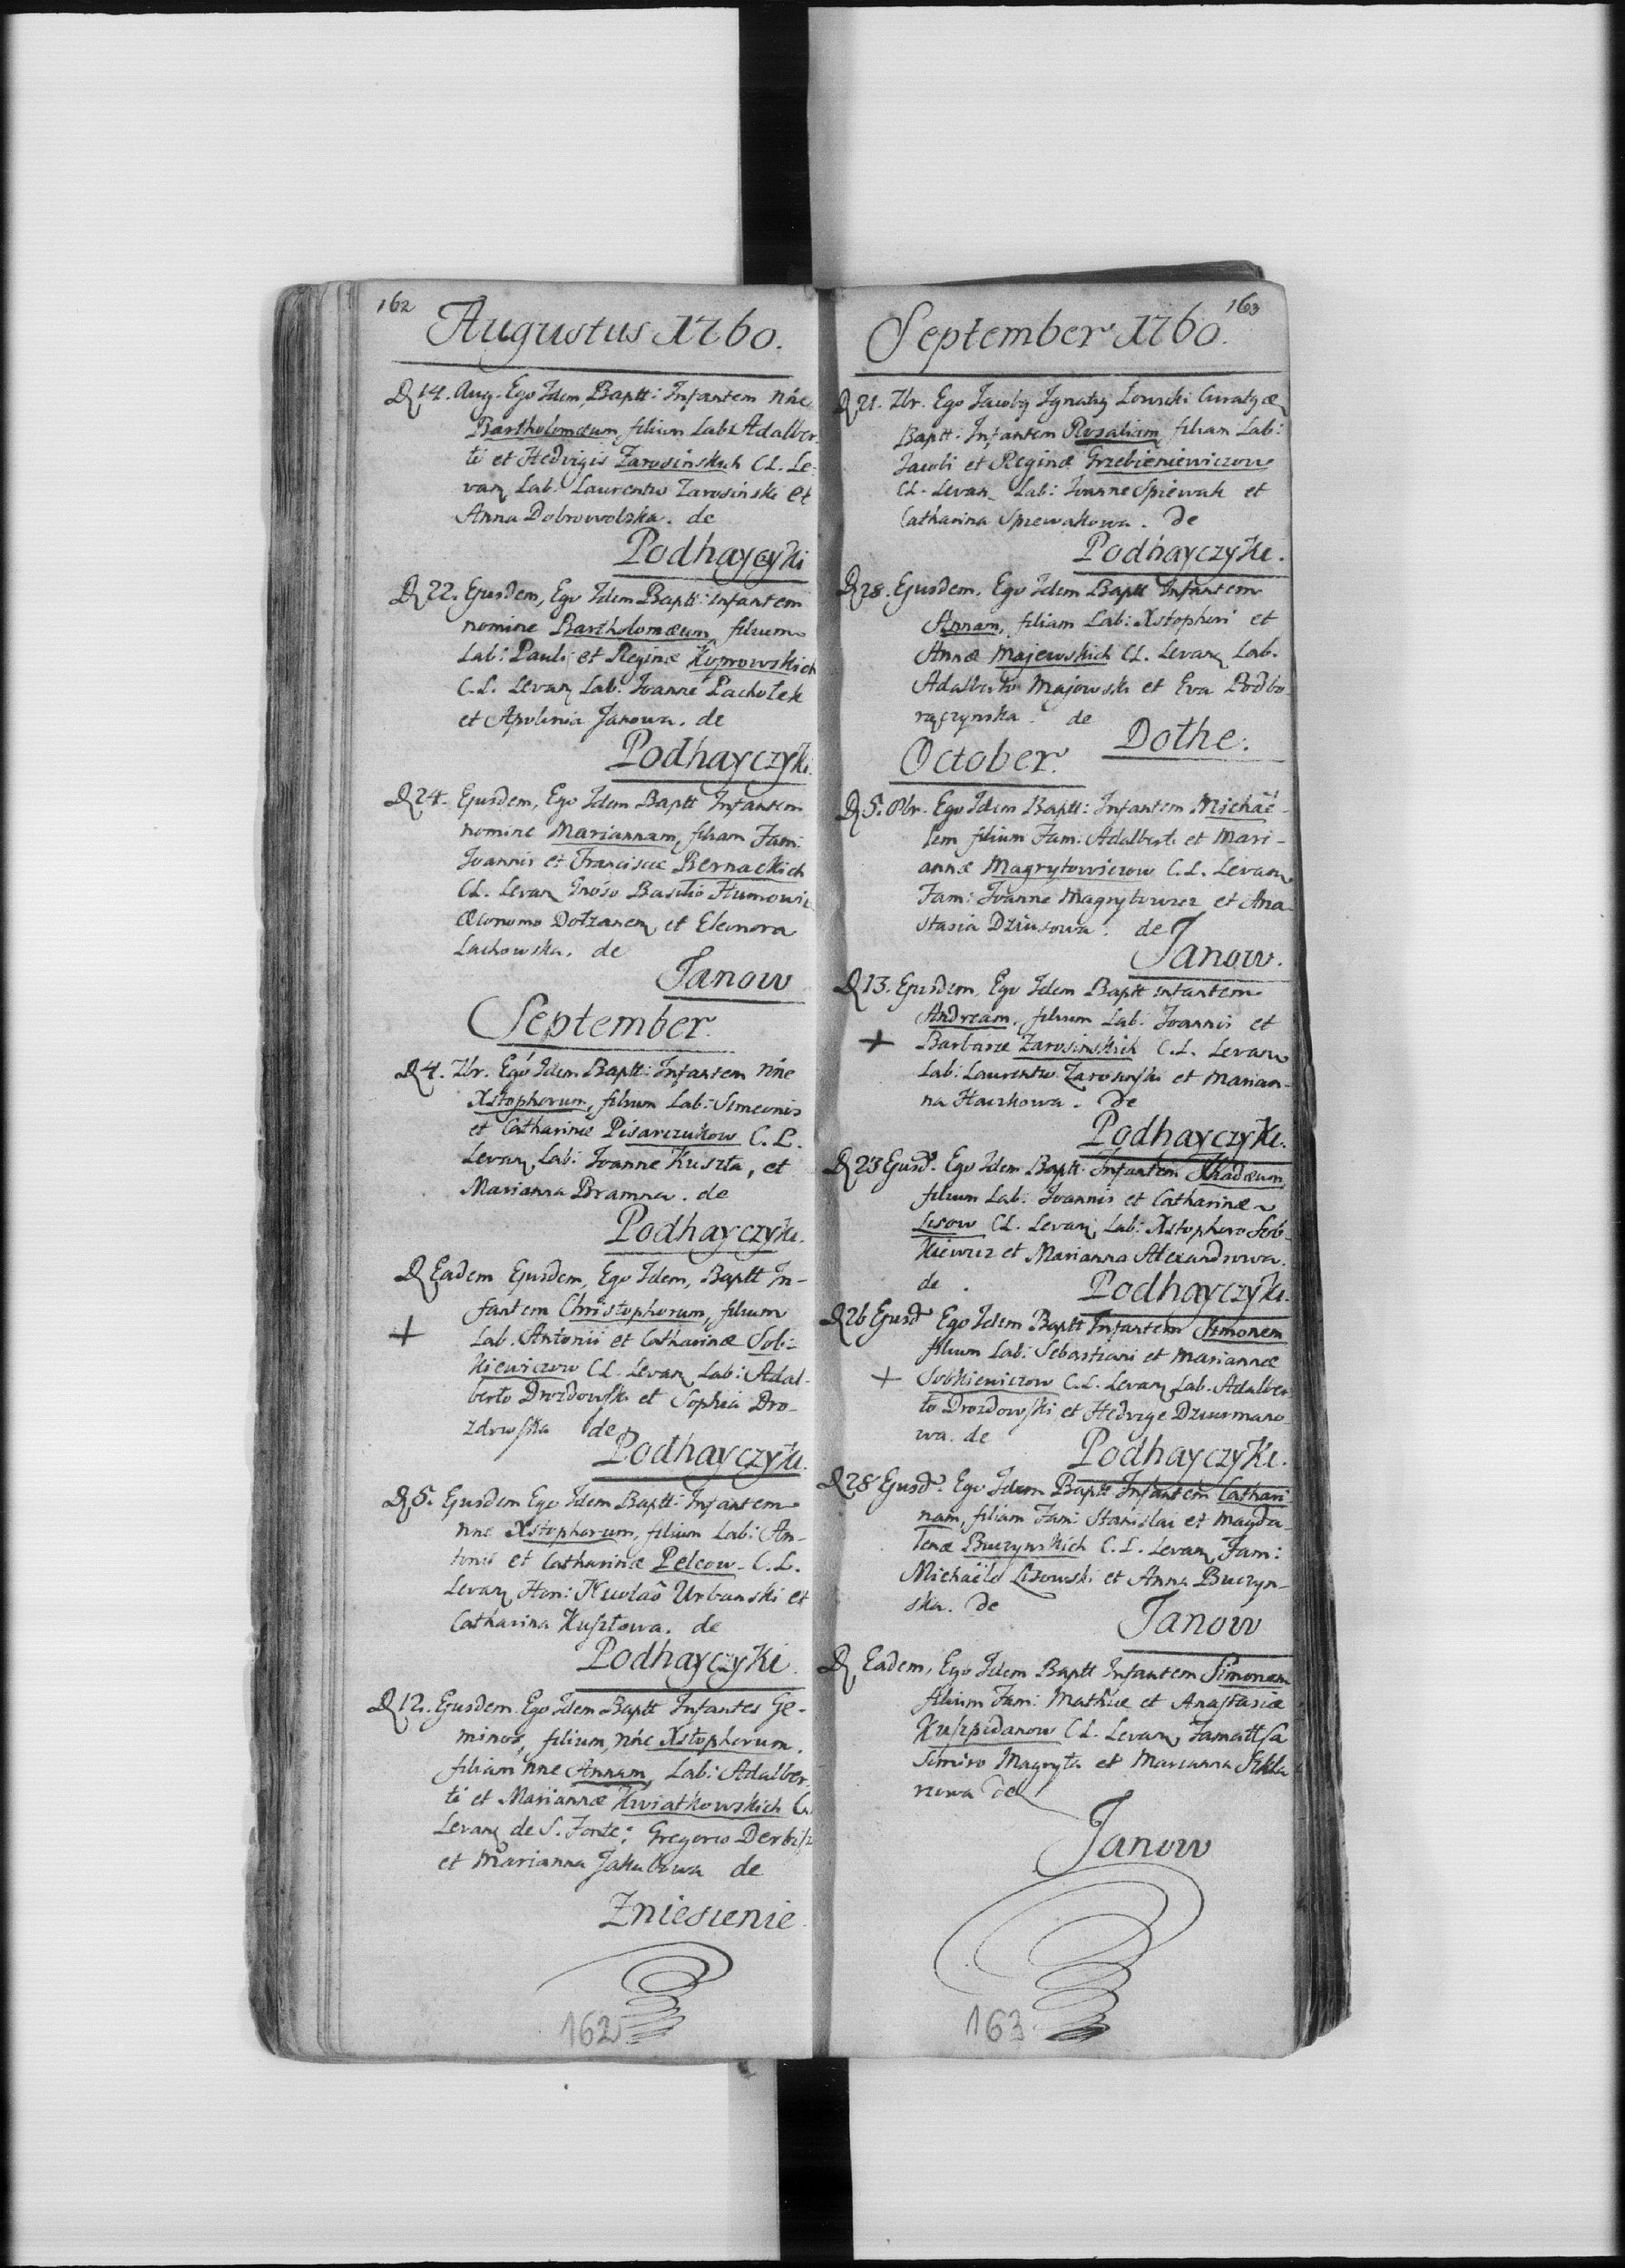 162
Augustus 1760.
D 14. Aug. Ego Idem, Baptt: Infantem nne
Bartholomæum, filium Lab: Adalber
ti et Hedvigis Zarosinskich CL. Le-
van Lab: Laurentio Zarosinski et
Anna Dobrowolska. de
Podhayczyki
D 22. Ejusdem, Ego Idem Baptt: Infantem
nomine Bartholomæum, filium
Lab: Pauli et Reginæ Kuprowskich
C.L. Levan Lab: Joanne Pachołek
et Apolinia Janowa. de
Podhayczyki.
D 24. Ejusdem, Ego Idem Baptt Infantem
nomine Mariannam, filiam Fam:
Joannis et Franciscæ Bernackich
CL. Levan Gnoso Basilio
Œconomo et Eleonora
Lachowska. de
Janow
September.
D 4. 7br. Ego Idem Baptt: Infantem nne
Xstophorum, filium Lab: Simeonis
et Catharinæ Pisarczukow C.L.
Levan Lab: Joanne Kuszła, et
Marianna Bramna. de
Podhayczyki.
D Eadem Ejusdem, Ego Idem, Baptt In-
fantem Christophorum, filium
+ Lab. Antonii et Catharinæ Sob-
kiewiczow CL. Levan Lab: Adal-
berto Drozdowski et Sophia Dro-
zdowska de
Podhayczyki.
D 5. Ejusdem Ego Idem Baptt: Infantem
nne Xstophorum, filium Lab: An-
tonii et Catharinæ Pelcow. C.L.
Levan Hon: Nicolao Urbanski et
Catharina Kuszłowa. de
Podhayczyki.
D 12. Ejusdem. Ego Idem Baptt Infantes Ge-
minos, filium nne Xstophorum.
filiam nne Annam, Lab: Adalber
ti et Mariannæ Kwiatkowskich C.
Levan de S. Fonte: Gregorio Derbisz
et Marianna Jakubowa de
Zniesienie.
162
163
September 1760.
D 21. 7br. Ego Ignaty Curaty
Baptt: Infantem Rosaliam, filiam Lab:
Jacobi et Reginæ Grzebieniewiczow
CL. Levan. Lab: Joanne Spiewak et
Catharina Spiewakowa. de
Podhayczyki.
D 28. Ejusdem. Ego Idem Baptt Infantem
Annam, filiam Lab: Xstophori et
Annæ Majewskich CL. Levan Lab.
Adalberto Majowski et Eva Podbo-
ręczynska. de
Dołhe.
October.
D 5. 8br. Ego Idem Baptt: Infantem Michae-
lem filium Fam: Adalberti et Mari-
annæ Magrytowiczow C.L. Levan
Fam: Joanne Magrytowicz et Ana-
stasia Dziusowa. de
Janow.
D 13. Ejusdem, Ego Idem Baptt infantem
Andream, filium Lab. Joannis et
+ Barbaræ Zarosinskich C.L. Levan
Lab: Laurentio Zarosinski et Marian-
na Haczkowa. de
Podhayczyki.
D 23 Ejusd. Ego Idem Baptt: Infantem Thadæum
filium Lab: Joannis et Catharinæ
Lisow CL. Levan Lab: Xstophero Sob-
kiewicz et Marianna Alexandrowa.
de.
Podhayczyki.
D 26 Ejusd Ego Idem Baptt Infantem Simonem
filium Lab: Sebastiani et Mariannæ
+ Sobkiewiczow C.L. Levan Lab. Adalber
to Drozdowski et Hedvige
wa. de
Podhayczyki.
D 28 Ejusd. Ego Idem Baptt Infantem Cathari-
nam, filiam Fam: Stanislai et Magda-
lenæ Buczynskich C.L. Levan Fam:
Michaele Lisowski et Anna Buczyn-
ska. de
Janow
D Eadem, Ego Idem Baptt Infantem Simonem
filium Fam: Mathiæ et Anastasiæ
Kuszpidanow CL. Levan
Magryta et Marianna
de
Janow
163